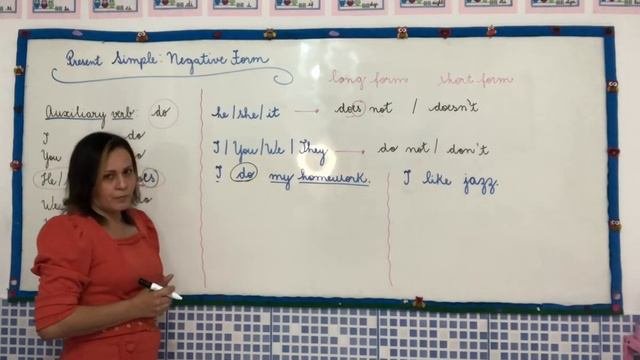 Present Simple: Negative Form
long form short form
Auxiliary verb: do
I do
You
He/
We do
he/she/it does not / doesn't
I/You/We/They do not / don't
I do my homework.
I like jazz.